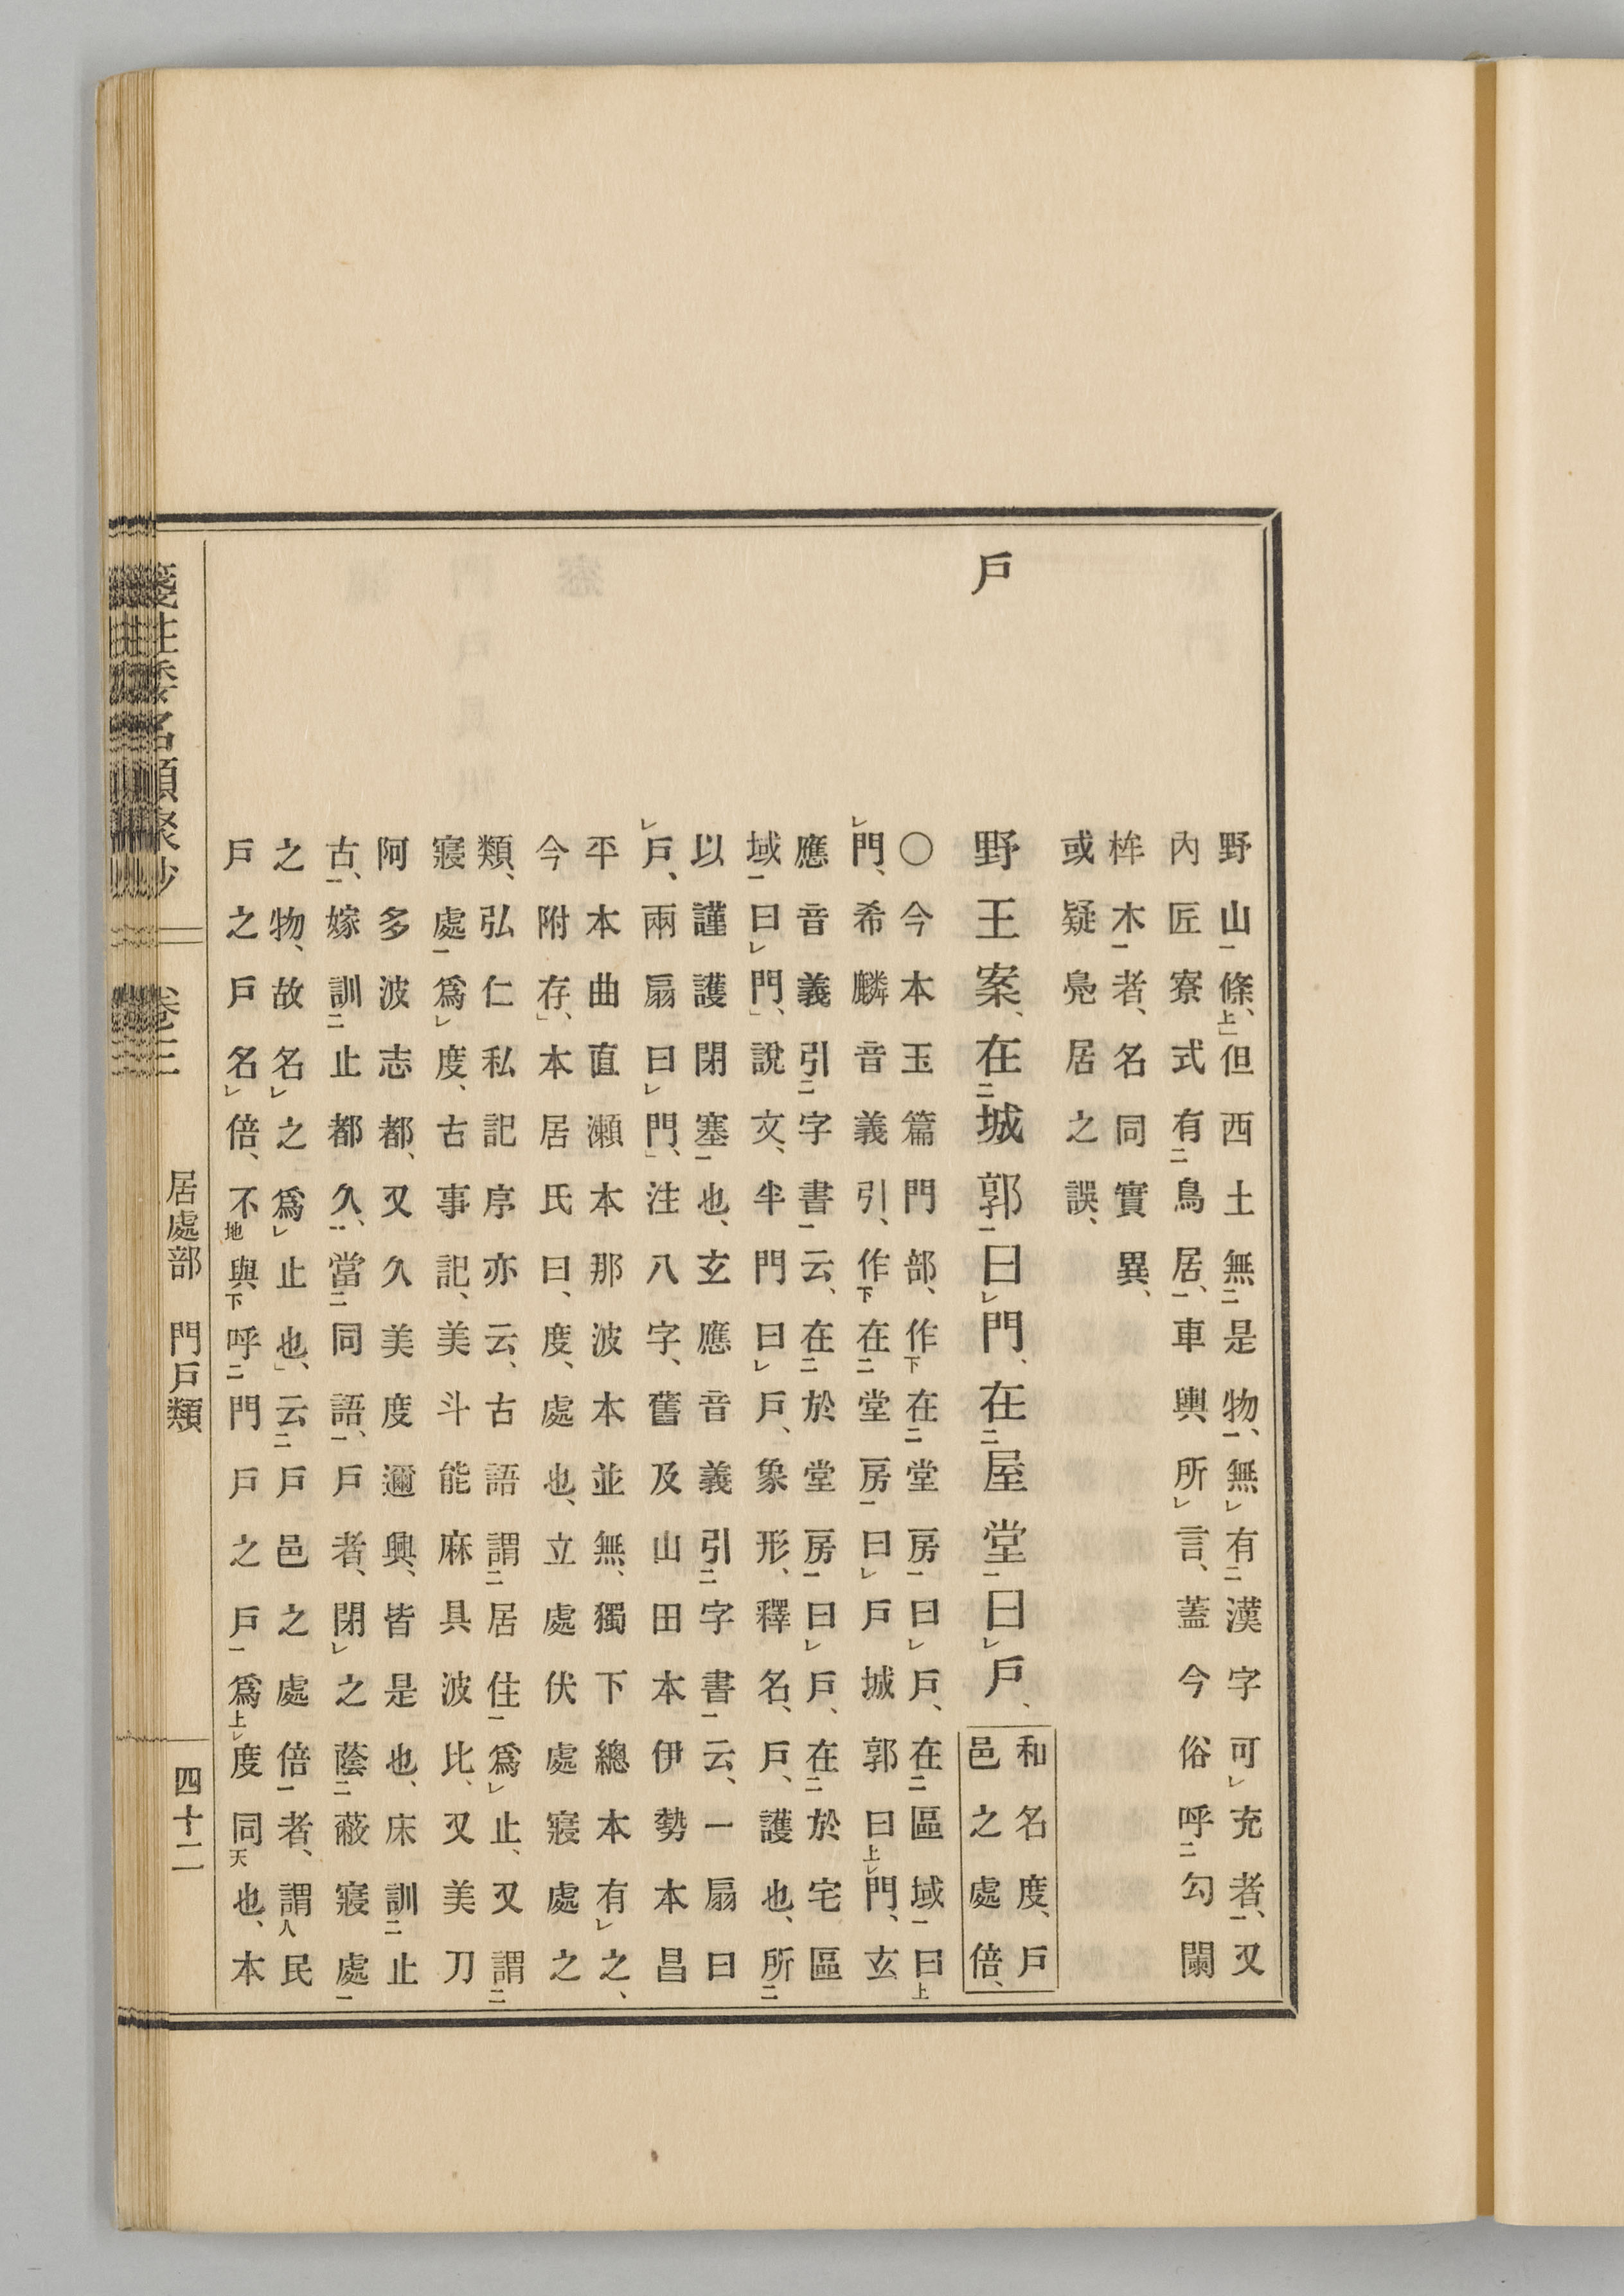 野山一條、上但西土無二是物一、無レ有二漢字可レ充者一、又
內匠寮式有二鳥居一、車輿所レ言、蓋今俗呼二勾闌
桙木一者、名同實異、
或疑鳧居之誤、
戶
野王案、在二城郭一曰レ門、在二屋堂一曰レ戶、
和名度、戶
邑之處倍、
〇今本玉篇門部、作下在二堂房一曰レ戶、在二區域一曰上
レ門、希麟音義引、作下在二堂房一曰レ戶城郭曰上レ門、玄
應音義引二字書一云、在二於堂房一曰レ戶、在二於宅區
域一曰レ門、說文、半門曰レ戶、象形、釋名、戶、護也、所二
以謹護閉塞一也、玄應音義引二字書一云、一扇曰
レ戶、兩扇曰レ門、注八字、舊及山田本伊勢本昌
平本曲直瀨本那波本並無、獨下總本有レ之、
今附存、本居氏曰、度、處也、立處伏處寢處之
類、弘仁私記序亦云、古語謂二居住一爲レ止、又謂二
寢處一爲レ度、古事記、美斗能麻具波比、又美刀
阿多波志都、又久美度邇興、皆是也、床訓二止
古一、嫁訓二止都久一、當二同語一、戶者、閉レ之蔭二蔽寢處一
之物、故名レ之爲レ止也、云二戶邑之處倍一者、謂人民
戶之戶名レ倍、不地與下呼二門戶之戶一爲上レ度同天也、本
箋注倭名類聚抄 卷三 居處部 門戶類 四十二